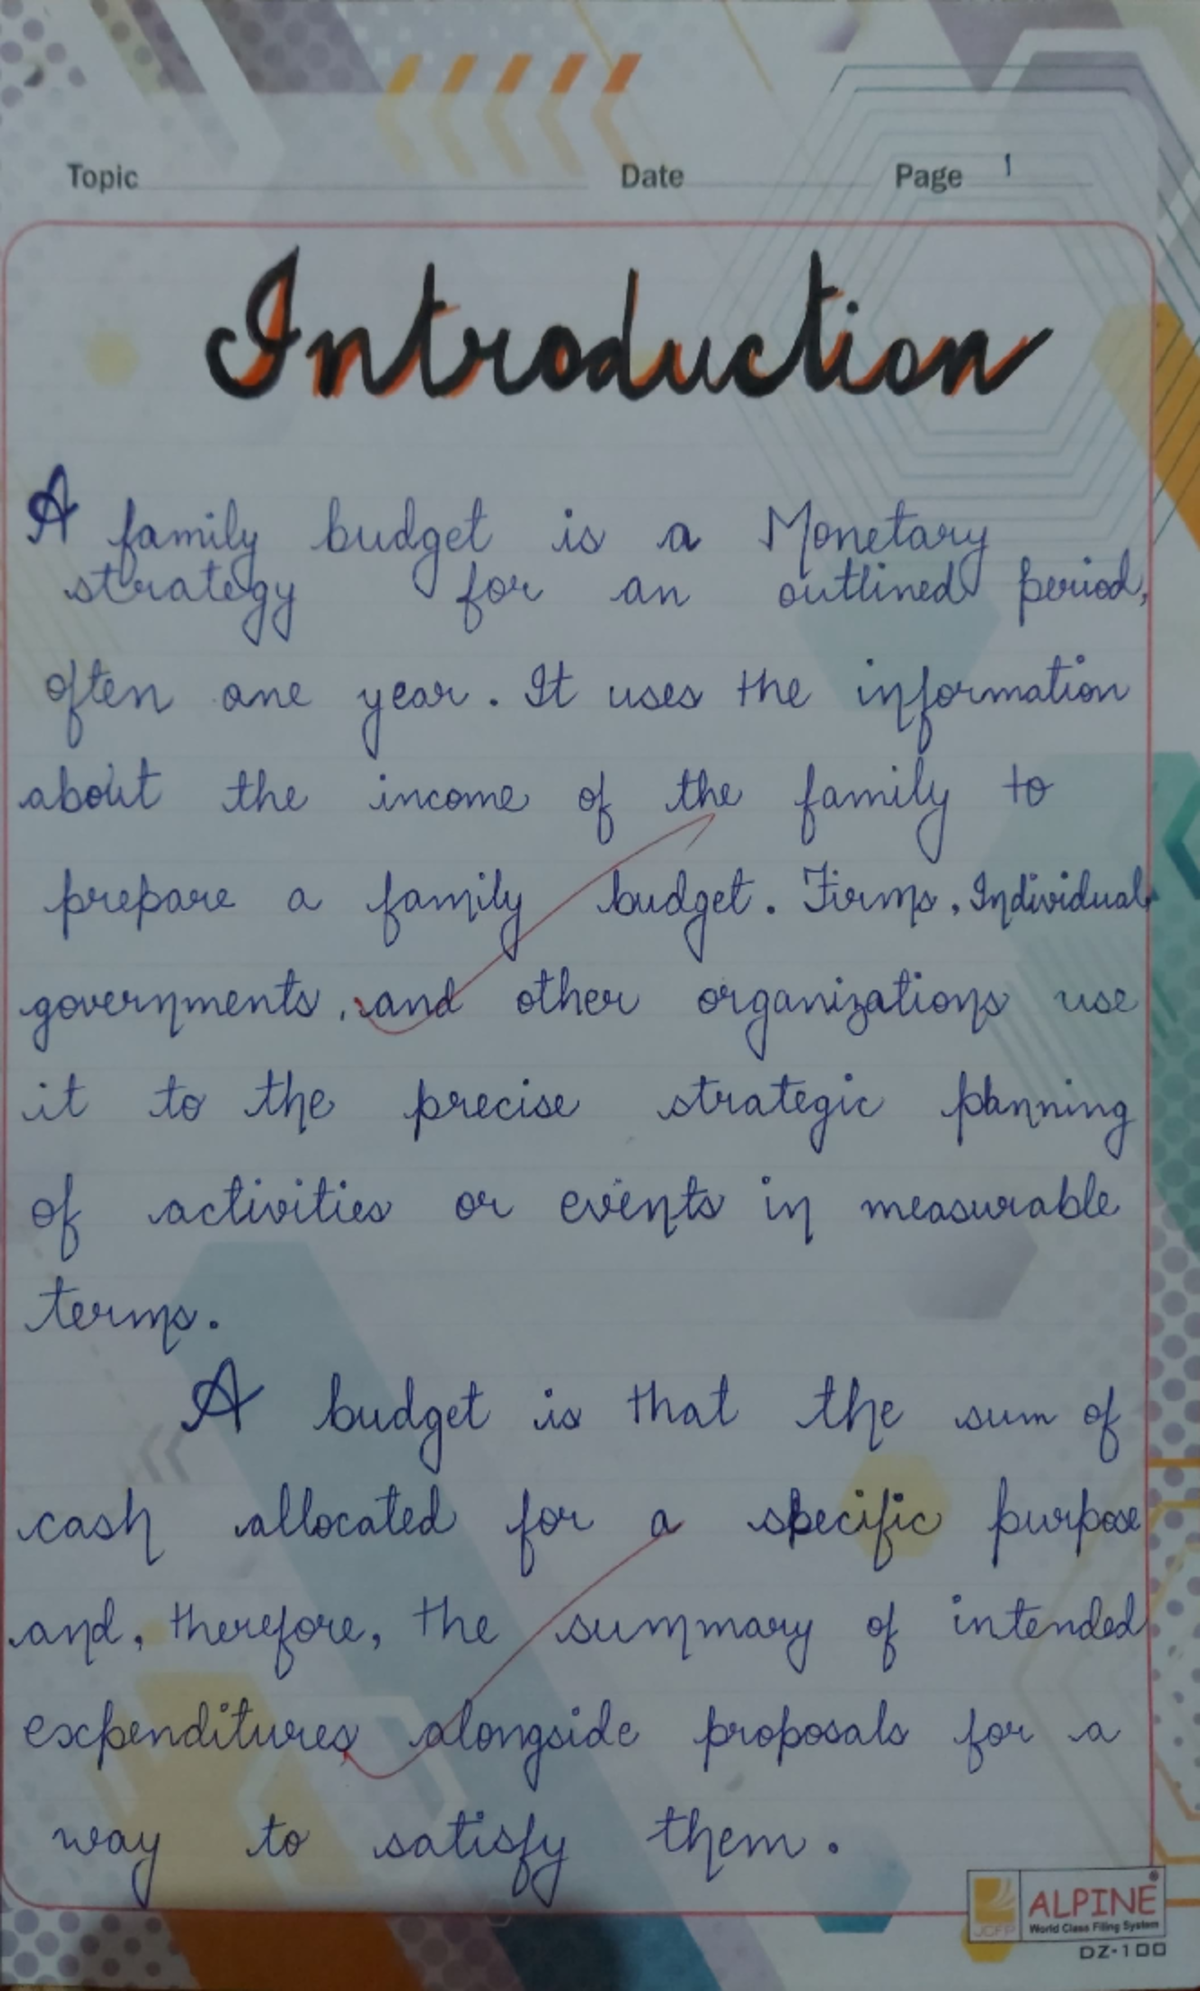 Topic Date Page 1
Introduction
A family budget is a Monetary
strategy for an outlined period,
often one year. It uses the information
about the income of the family to
prepare a family budget. Firms, Individuals
governments, and other organizations use
it to the precise strategic planning
of activities or events in measurable
terms.
A budget is that the sum of
cash allocated for a specific purpose
and, therefore, the summary of intended
expenditures alongside proposals for a
way to satisfy them.
JCFP ALPINE
World Class Filing System
DZ-100